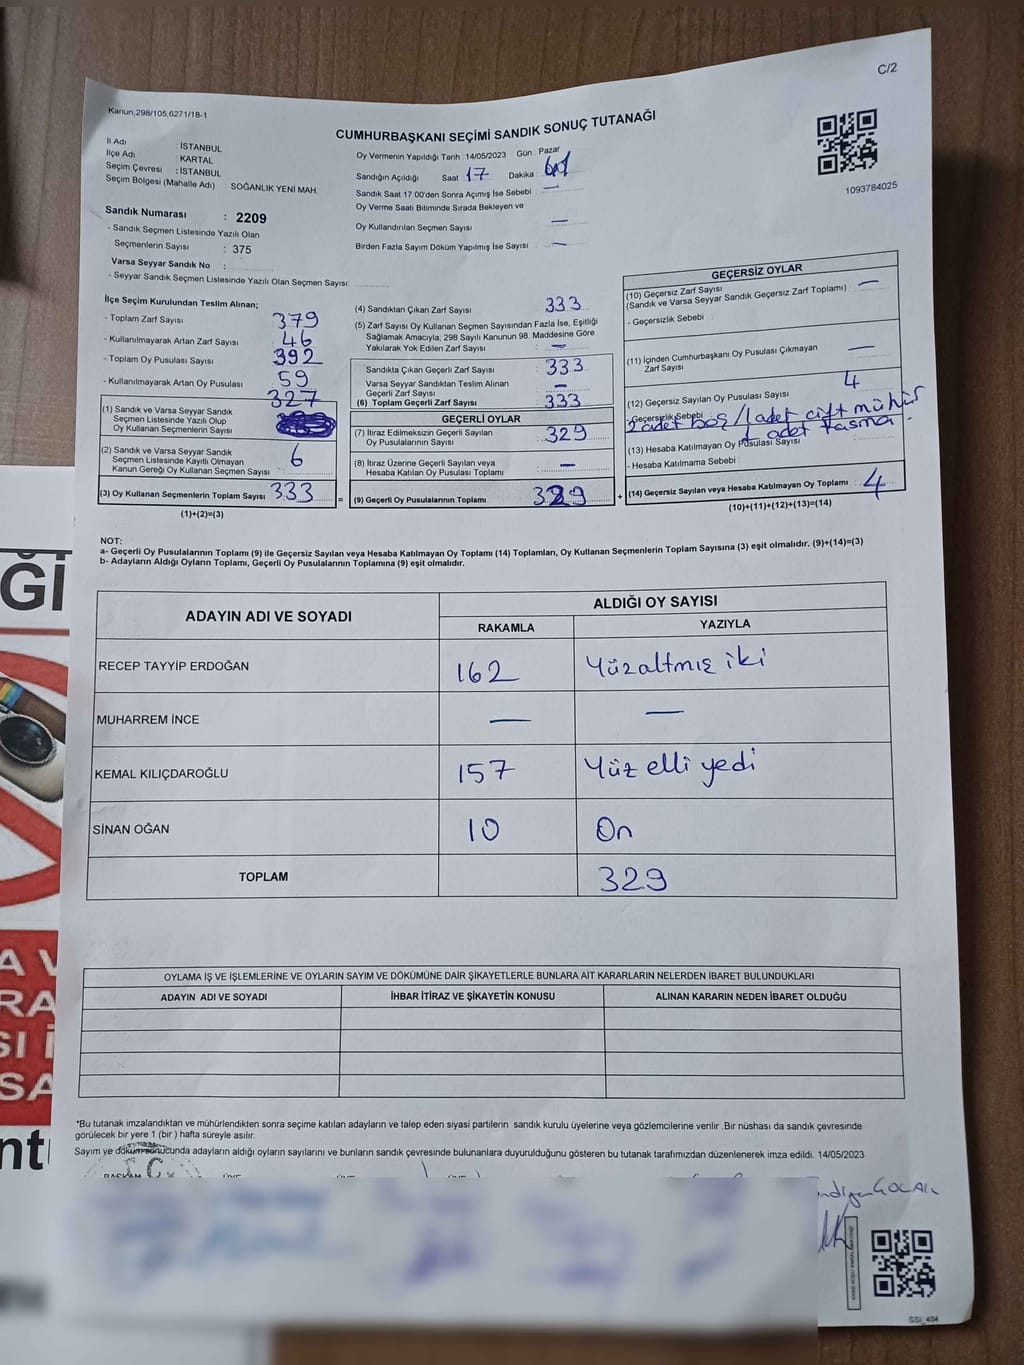 C/2
Kanun,298/105,6271/18-1
CUMHURBAŞKANI SEÇİMİ SANDIK SONUÇ TUTANAĞI
İl Adı : İSTANBUL
İlçe Adı : KARTAL
Seçim Çevresi : İSTANBUL
Seçim Bölgesi (Mahalle Adı) SOĞANLIK YENİ MAH.
Oy Vermenin Yapıldığı Tarih :14/05/2023 Gün : Pazar
Sandığın Açıldığı Saat 17 Dakika
Sandık Saat 17.00'den Sonra Açımış İse Sebebi : —
Oy Verme Saati Bitiminde Sırada Bekleyen ve
Oy Kullandırılan Seçmen Sayısı : —
Birden Fazla Sayım Döküm Yapılmış İse Sayısı : —
1093784025
Sandık Numarası : 2209
- Sandık Seçmen Listesinde Yazılı Olan
Seçmenlerin Sayısı : 375
Varsa Seyyar Sandık No :
- Seyyar Sandık Seçmen Listesinde Yazılı Olan Seçmen Sayısı :
İlçe Seçim Kurulundan Teslim Alınan;
- Toplam Zarf Sayısı 379
- Kullanılmayarak Artan Zarf Sayısı 46
- Toplam Oy Pusulası Sayısı 392
- Kullanılmayarak Artan Oy Pusulası 59
327
(1) Sandık ve Varsa Seyyar Sandık
Seçmen Listesinde Yazılı Olup
Oy Kullanan Seçmenlerin Sayısı
(2) Sandık ve Varsa Seyyar Sandık
Seçmen Listesinde Kayıtlı Olmayan
Kanun Gereği Oy Kullanan Seçmen Sayısı 6
(3) Oy Kullanan Seçmenlerin Toplam Sayısı 333
(1)+(2)=(3)
=
(4) Sandıktan Çıkan Zarf Sayısı 333
(5) Zarf Sayısı Oy Kullanan Seçmen Sayısından Fazla İse, Eşitliği
Sağlamak Amacıyla; 298 Sayılı Kanunun 98. Maddesine Göre
Yakılarak Yok Edilen Zarf Sayısı : —
Sandıkta Çıkan Geçerli Zarf Sayısı : 333
Varsa Seyyar Sandıktan Teslim Alınan
Geçerli Zarf Sayısı : —
(6) Toplam Geçerli Zarf Sayısı : 333
GEÇERLİ OYLAR
(7) İtiraz Edilmeksizin Geçerli Sayılan
Oy Pusulalarının Sayısı : 329
(8) İtiraz Üzerine Geçerli Sayılan veya
Hesaba Katılan Oy Pusulası Toplamı : —
(9) Geçerli Oy Pusulalarının Toplamı 329
+
GEÇERSİZ OYLAR
(10) Geçersiz Zarf Sayısı
(Sandık ve Varsa Seyyar Sandık Geçersiz Zarf Toplamı) : —
- Geçersizlik Sebebi :
(11) İçinden Cumhurbaşkanı Oy Pusulası Çıkmayan
Zarf Sayısı —
(12) Geçersiz Sayılan Oy Pusulası Sayısı 4
- Geçersizlik Sebebi : 2 adet boş / 1 adet çift mühür
1 adet taşma
(13) Hesaba Katılmayan Oy Pusulası Sayısı
- Hesaba Katılmama Sebebi :
(14) Geçersiz Sayılan veya Hesaba Katılmayan Oy Toplamı : 4
(10)+(11)+(12)+(13)=(14)
NOT:
a- Geçerli Oy Pusulalarının Toplamı (9) ile Geçersiz Sayılan veya Hesaba Katılmayan Oy Toplamı (14) Toplamları, Oy Kullanan Seçmenlerin Toplam Sayısına (3) eşit olmalıdır. (9)+(14)=(3)
b- Adayların Aldığı Oyların Toplamı, Geçerli Oy Pusulalarının Toplamına (9) eşit olmalıdır.
ADAYIN ADI VE SOYADI ALDIĞI OY SAYISI
RAKAMLA YAZIYLA
RECEP TAYYİP ERDOĞAN 162 Yüzaltmış iki
MUHARREM İNCE — —
KEMAL KILIÇDAROĞLU 157 Yüz elli yedi
SİNAN OĞAN 10 On
TOPLAM 329
OYLAMA İŞ VE İŞLEMLERİNE VE OYLARIN SAYIM VE DÖKÜMÜNE DAİR ŞİKAYETLERLE BUNLARA AİT KARARLARIN NELERDEN İBARET BULUNDUKLARI
ADAYIN ADI VE SOYADI İHBAR İTİRAZ VE ŞİKAYETİN KONUSU ALINAN KARARIN NEDEN İBARET OLDUĞU
*Bu tutanak imzalandıktan ve mühürlendikten sonra seçime katılan adayların ve talep eden siyasi partilerin sandık kurulu üyelerine veya gözlemcilerine verilir .Bir nüshası da sandık çevresinde
görülecek bir yere 1 (bir ) hafta süreyle asılır.
Sayım ve döküm sonucunda adayların aldığı oyların sayılarını ve bunların sandık çevresinde bulunanlara duyurulduğunu gösteren bu tutanak tarafımızdan düzenlenerek imza edildi. 14/05/2023
T.C.
BAŞKAN
SSI_404
Ğİ
A V
RA
SI İ
SA
nt